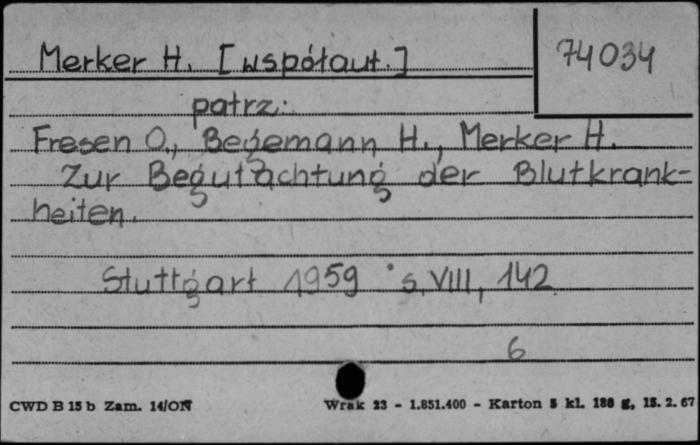 Merker H. [współaut.]
74034
patrz:
Fresen O., Begemann H., Merker H.
Zur Begutachtung der Blutkrank-
heiten.
Stuttgart 1959 s. VIII, 142
6
CWD B 15 b Zam. 14/ON Wrak 23 - 1.851.400 - Karton 5 kl. 180 g, 15. 2. 67